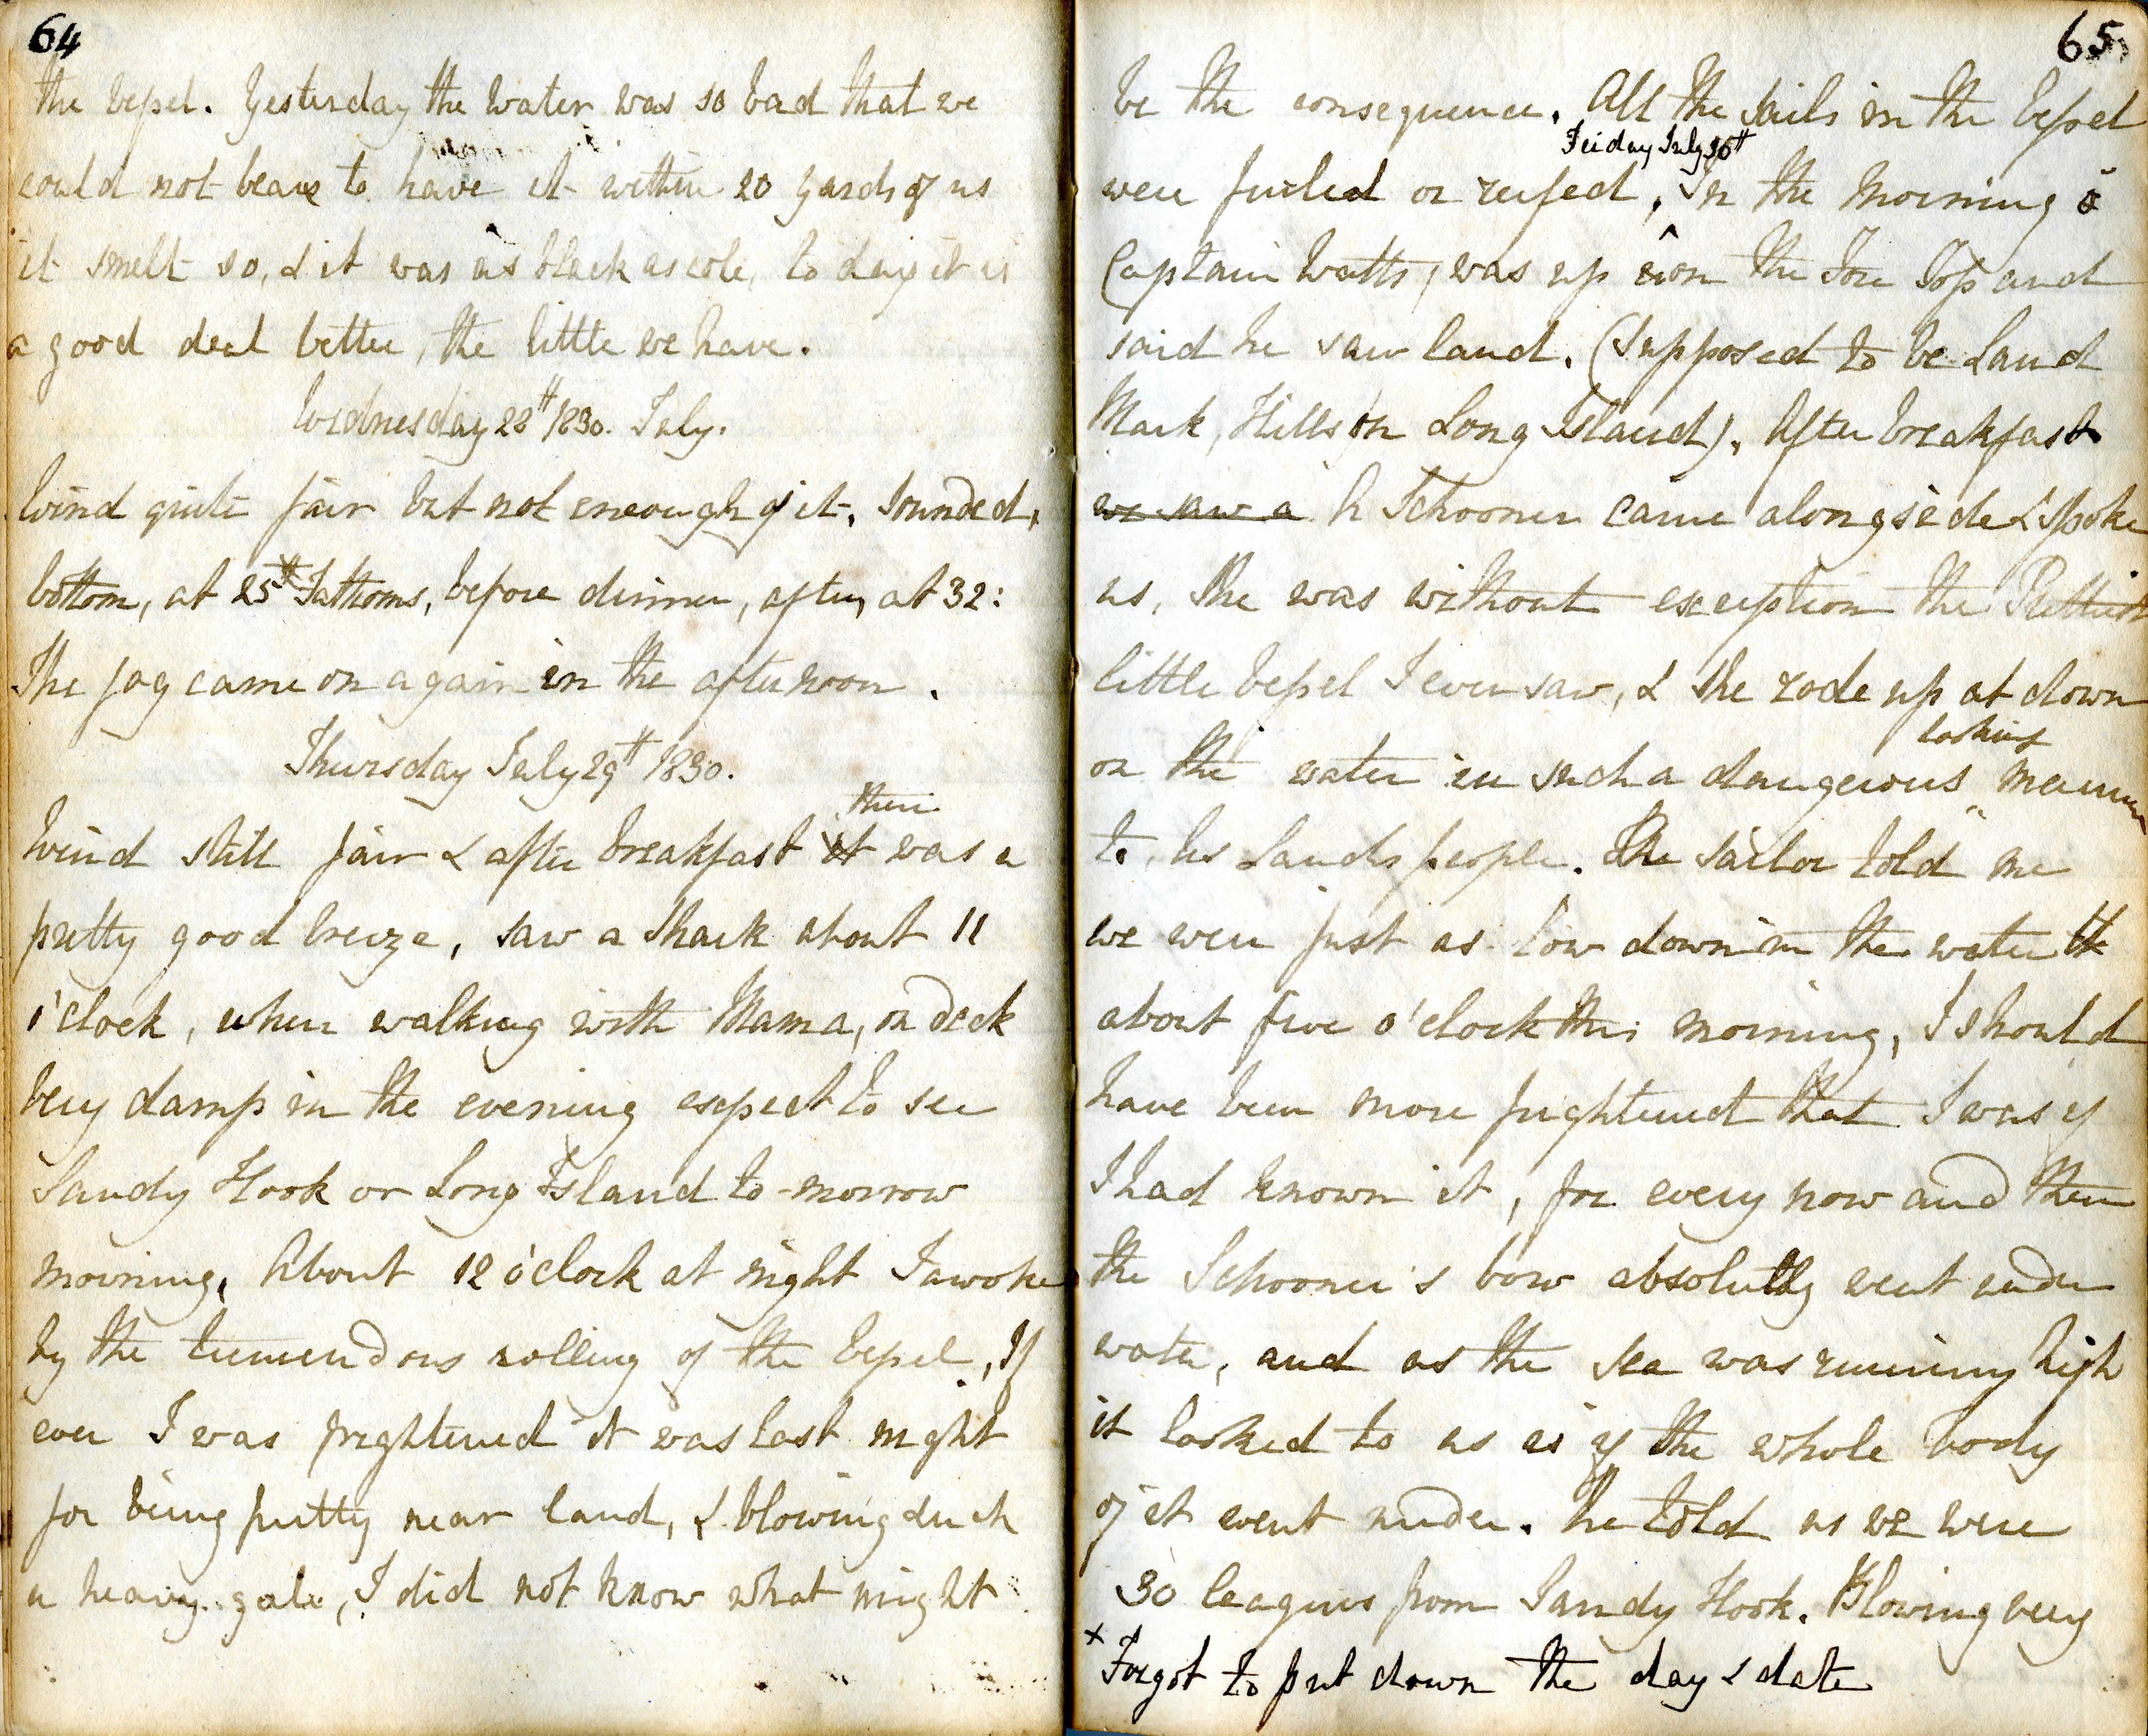 64
the Vessel. Yesterday the Water was so bad that we
could not beare to have it within 20 yards of us
it smelt so, & it was as black as cole, to day it is
a good deal better, the little we have.
Wednesday 28th 1830. July.
Wind quite fair but not eneough of it. Sounded,
bottom, at 25th Fathoms, before dinner, after, at 32:
The fog came on again in the afternoon.
Thursday July 29th 1830.
there
Wind still fair & after breakfast it was a
pretty good breeze, saw a Shark about 11
o'clock, when walking with Mama, on deck
Very damp in the evening expect to see
Sandy Hook or Long Island to-morrow
morning. About 12 o'clock at night I awoke
by the tremendous rolling of the Vessel, If
ever I was frightened it was last night
for being pretty near land, & blowing such
a heavy gale, I did not know what might
65
be the consequence. All the Sails in the Vessel
Friday July 30th
were furled or reefed, In the Morning
Captain Watts, was up on the Fore Top and
said he saw land. (Supposed to be Land
Mark, Hills on Long Island). After breakfast
we saw a A Schooner came alongside & Spoke
us, She was without exception the Prettiest
little Vessel I ever saw, & she rode up at down
looking
on the water in such a dangerous manner
to us Landspeople. The Sailor told me
we were just as low down in the water th
about five o'clock this morning, I should
have been more frightened that I was if
I had known it, for every now and then
the Schooner's bow absolutly went under
water, and as the sea was running high
it looked to us as if the whole body
of it went under. he told us we were
30 leagues from Sandy Hook. Blowing very
x Forgot to put down the day & date